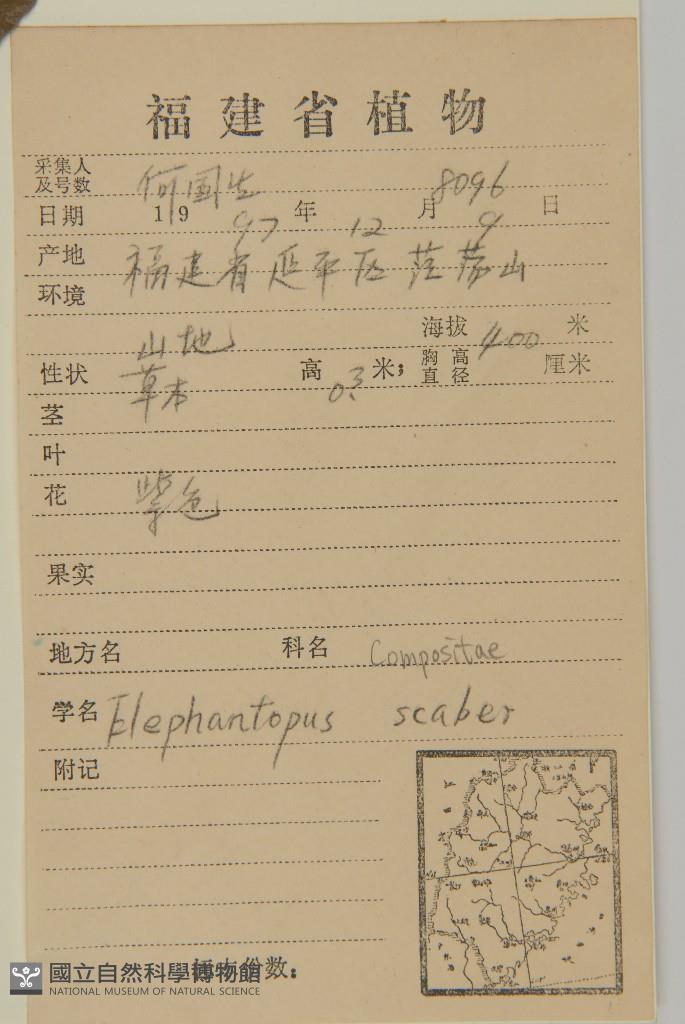 福建省植物
采集人及号数 何国生 8096
日期 1997年12月9日
产地 福建省延平区茫荡山
环境 山地 海拔 400 米
性状 草本 高 0.3 米；胸高直径 厘米
茎
叶
花 紫色
果实
地方名 科名 Compositae
学名 Elephantopus scaber
附记
份数：
國立自然科學博物館
NATIONAL MUSEUM OF NATURAL SCIENCE